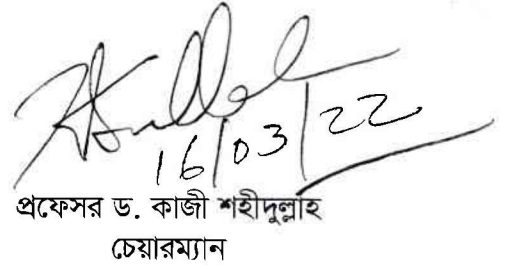 16/03/22
প্রফেসর ড. কাজী শহীদুল্লাহ
চেয়ারম্যান